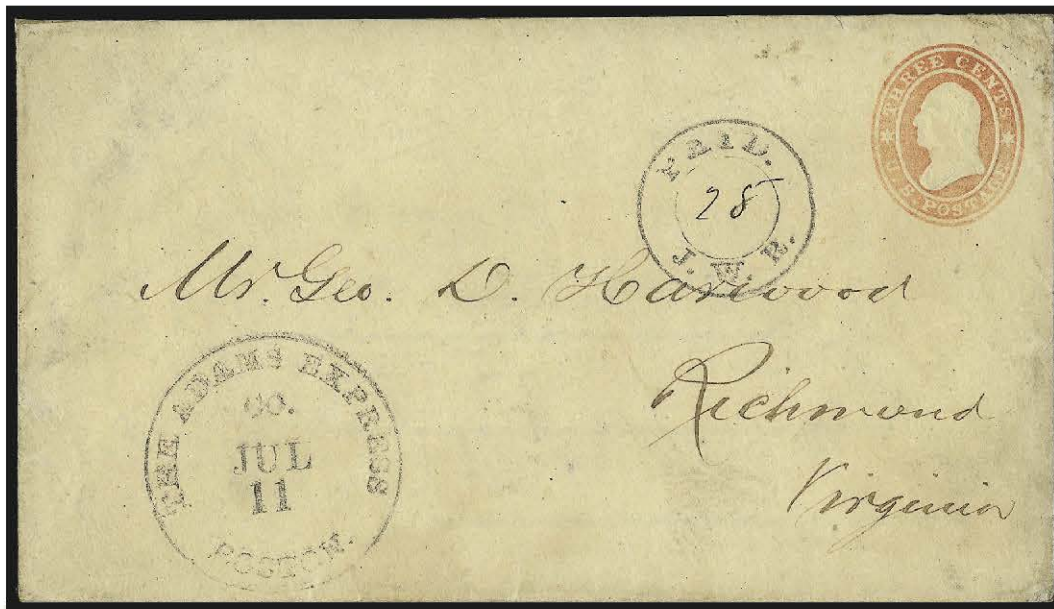 THREE CENTS
U.S. POSTAGE
PAID.
28
J. W. R.
Mr. Geo. D. Harwood
Richmond
Virginia
THE ADAMS EXPRESS
CO.
JUL
11
BOSTON.